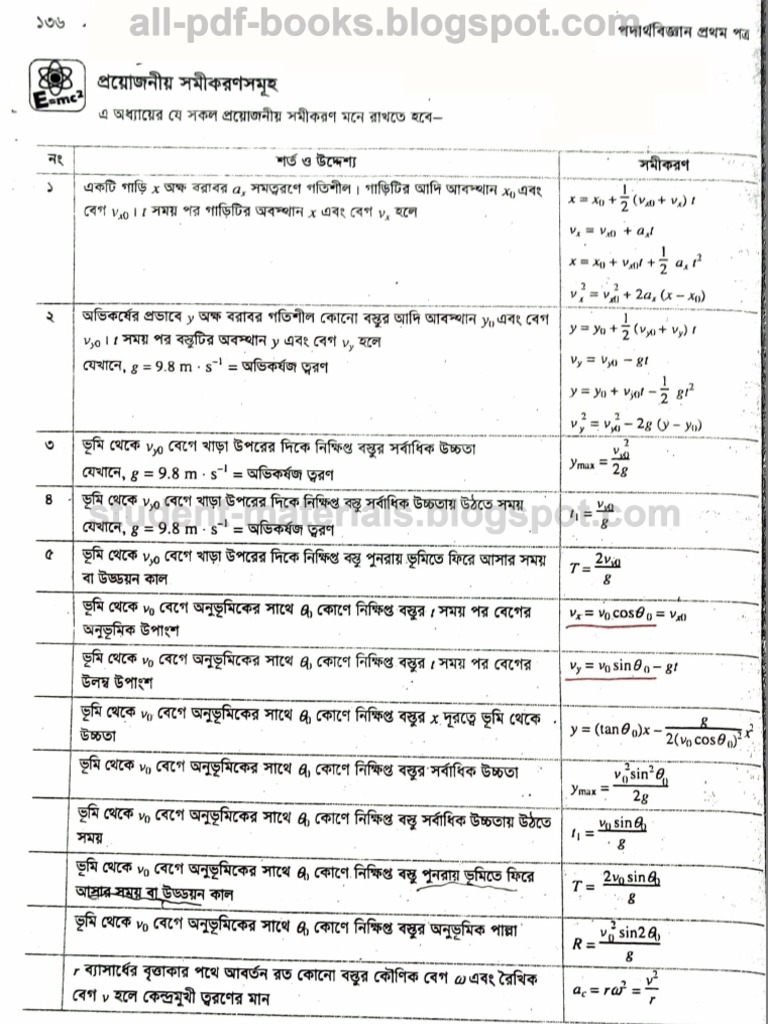 all-pdf-books.blogspot.com
১৩৬
পদার্থবিজ্ঞান প্রথম পত্র
E=mc²
প্রয়োজনীয় সমীকরণসমূহ
এ অধ্যায়ের যে সকল প্রয়োজনীয় সমীকরণ মনে রাখতে হবে—
নং শর্ত ও উদ্দেশ্য সমীকরণ
১ একটি গাড়ি x অক্ষ বরাবর aₓ সমত্বরণে গতিশীল। গাড়িটির আদি অবস্থান x₀ এবং
বেগ vₓ₀। t সময় পর গাড়িটির অবস্থান x এবং বেগ vₓ হলে
x = x₀ + 1/2 (vₓ₀ + vₓ) t
vₓ = vₓ₀ + aₓt
x = x₀ + vₓ₀t + 1/2 aₓ t²
vₓ² = vₓ₀² + 2aₓ (x − x₀)
২ অভিকর্ষের প্রভাবে y অক্ষ বরাবর গতিশীল কোনো বস্তুর আদি অবস্থান y₀ এবং বেগ
v_y0। t সময় পর বস্তুটির অবস্থান y এবং বেগ v_y হলে
যেখানে, g = 9.8 m · s⁻¹ = অভিকর্ষজ ত্বরণ
y = y₀ + 1/2 (v_y0 + v_y) t
v_y = v_y0 − gt
y = y₀ + v_y0t − 1/2 gt²
v_y² = v_y0² − 2g (y − y₀)
৩ ভূমি থেকে v_y0 বেগে খাড়া উপরের দিকে নিক্ষিপ্ত বস্তুর সর্বাধিক উচ্চতা
যেখানে, g = 9.8 m · s⁻¹ = অভিকর্ষজ ত্বরণ
y_max = v_y0²/2g
৪ ভূমি থেকে v_y0 বেগে খাড়া উপরের দিকে নিক্ষিপ্ত বস্তু সর্বাধিক উচ্চতায় উঠতে সময়
যেখানে, g = 9.8 m · s⁻¹ = অভিকর্ষজ ত্বরণ
t₁ = v_y0/g
student-materials.blogspot.com
৫ ভূমি থেকে v_y0 বেগে খাড়া উপরের দিকে নিক্ষিপ্ত বস্তু পুনরায় ভূমিতে ফিরে আসার সময়
বা উড্ডয়ন কাল
T = 2v_y0/g
ভূমি থেকে v₀ বেগে অনুভূমিকের সাথে θ₀ কোণে নিক্ষিপ্ত বস্তুর t সময় পর বেগের
অনুভূমিক উপাংশ
vₓ = v₀ cosθ₀ = vₓ₀
ভূমি থেকে v₀ বেগে অনুভূমিকের সাথে θ₀ কোণে নিক্ষিপ্ত বস্তুর t সময় পর বেগের
উলম্ব উপাংশ
v_y = v₀ sinθ₀ − gt
ভূমি থেকে v₀ বেগে অনুভূমিকের সাথে θ₀ কোণে নিক্ষিপ্ত বস্তুর x দূরত্বে ভূমি থেকে
উচ্চতা
y = (tanθ₀)x − g/2(v₀ cosθ₀)² x²
ভূমি থেকে v₀ বেগে অনুভূমিকের সাথে θ₀ কোণে নিক্ষিপ্ত বস্তুর সর্বাধিক উচ্চতা
y_max = v₀² sin²θ₀/2g
ভূমি থেকে v₀ বেগে অনুভূমিকের সাথে θ₀ কোণে নিক্ষিপ্ত বস্তু সর্বাধিক উচ্চতায় উঠতে
সময়
t₁ = v₀ sinθ₀/g
ভূমি থেকে v₀ বেগে অনুভূমিকের সাথে θ₀ কোণে নিক্ষিপ্ত বস্তু পুনরায় ভূমিতে ফিরে
আসার সময় বা উড্ডয়ন কাল
T = 2v₀ sinθ₀/g
ভূমি থেকে v₀ বেগে অনুভূমিকের সাথে θ₀ কোণে নিক্ষিপ্ত বস্তুর অনুভূমিক পাল্লা
R = v₀² sin2θ₀/g
r ব্যাসার্ধের বৃত্তাকার পথে আবর্তন রত কোনো বস্তুর কৌণিক বেগ ω এবং রৈখিক
বেগ v হলে কেন্দ্রমুখী ত্বরণের মান
a_c = rω² = v²/r